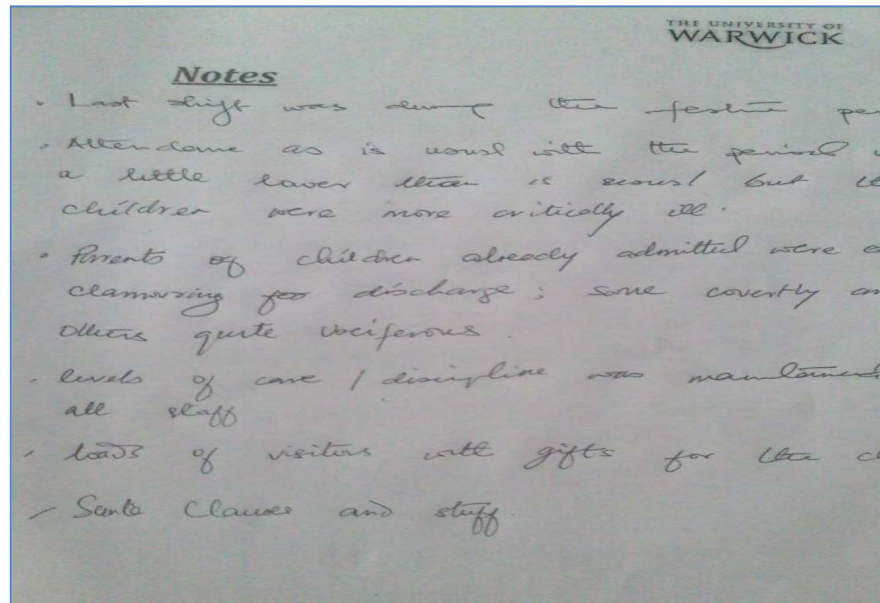 THE UNIVERSITY OF
WARWICK
Notes
• Last shift was during the festive per
• Attendance as is usual with the period w
a little lower than is usual but the
children were more critically ill.
• Parents of children already admitted were a
clamouring for discharge; some covertly an
others quite vociferous.
• levels of care / discipline was maintained
all staff
- loads of visitors with gifts for the c
- Santa Clauses and stuff